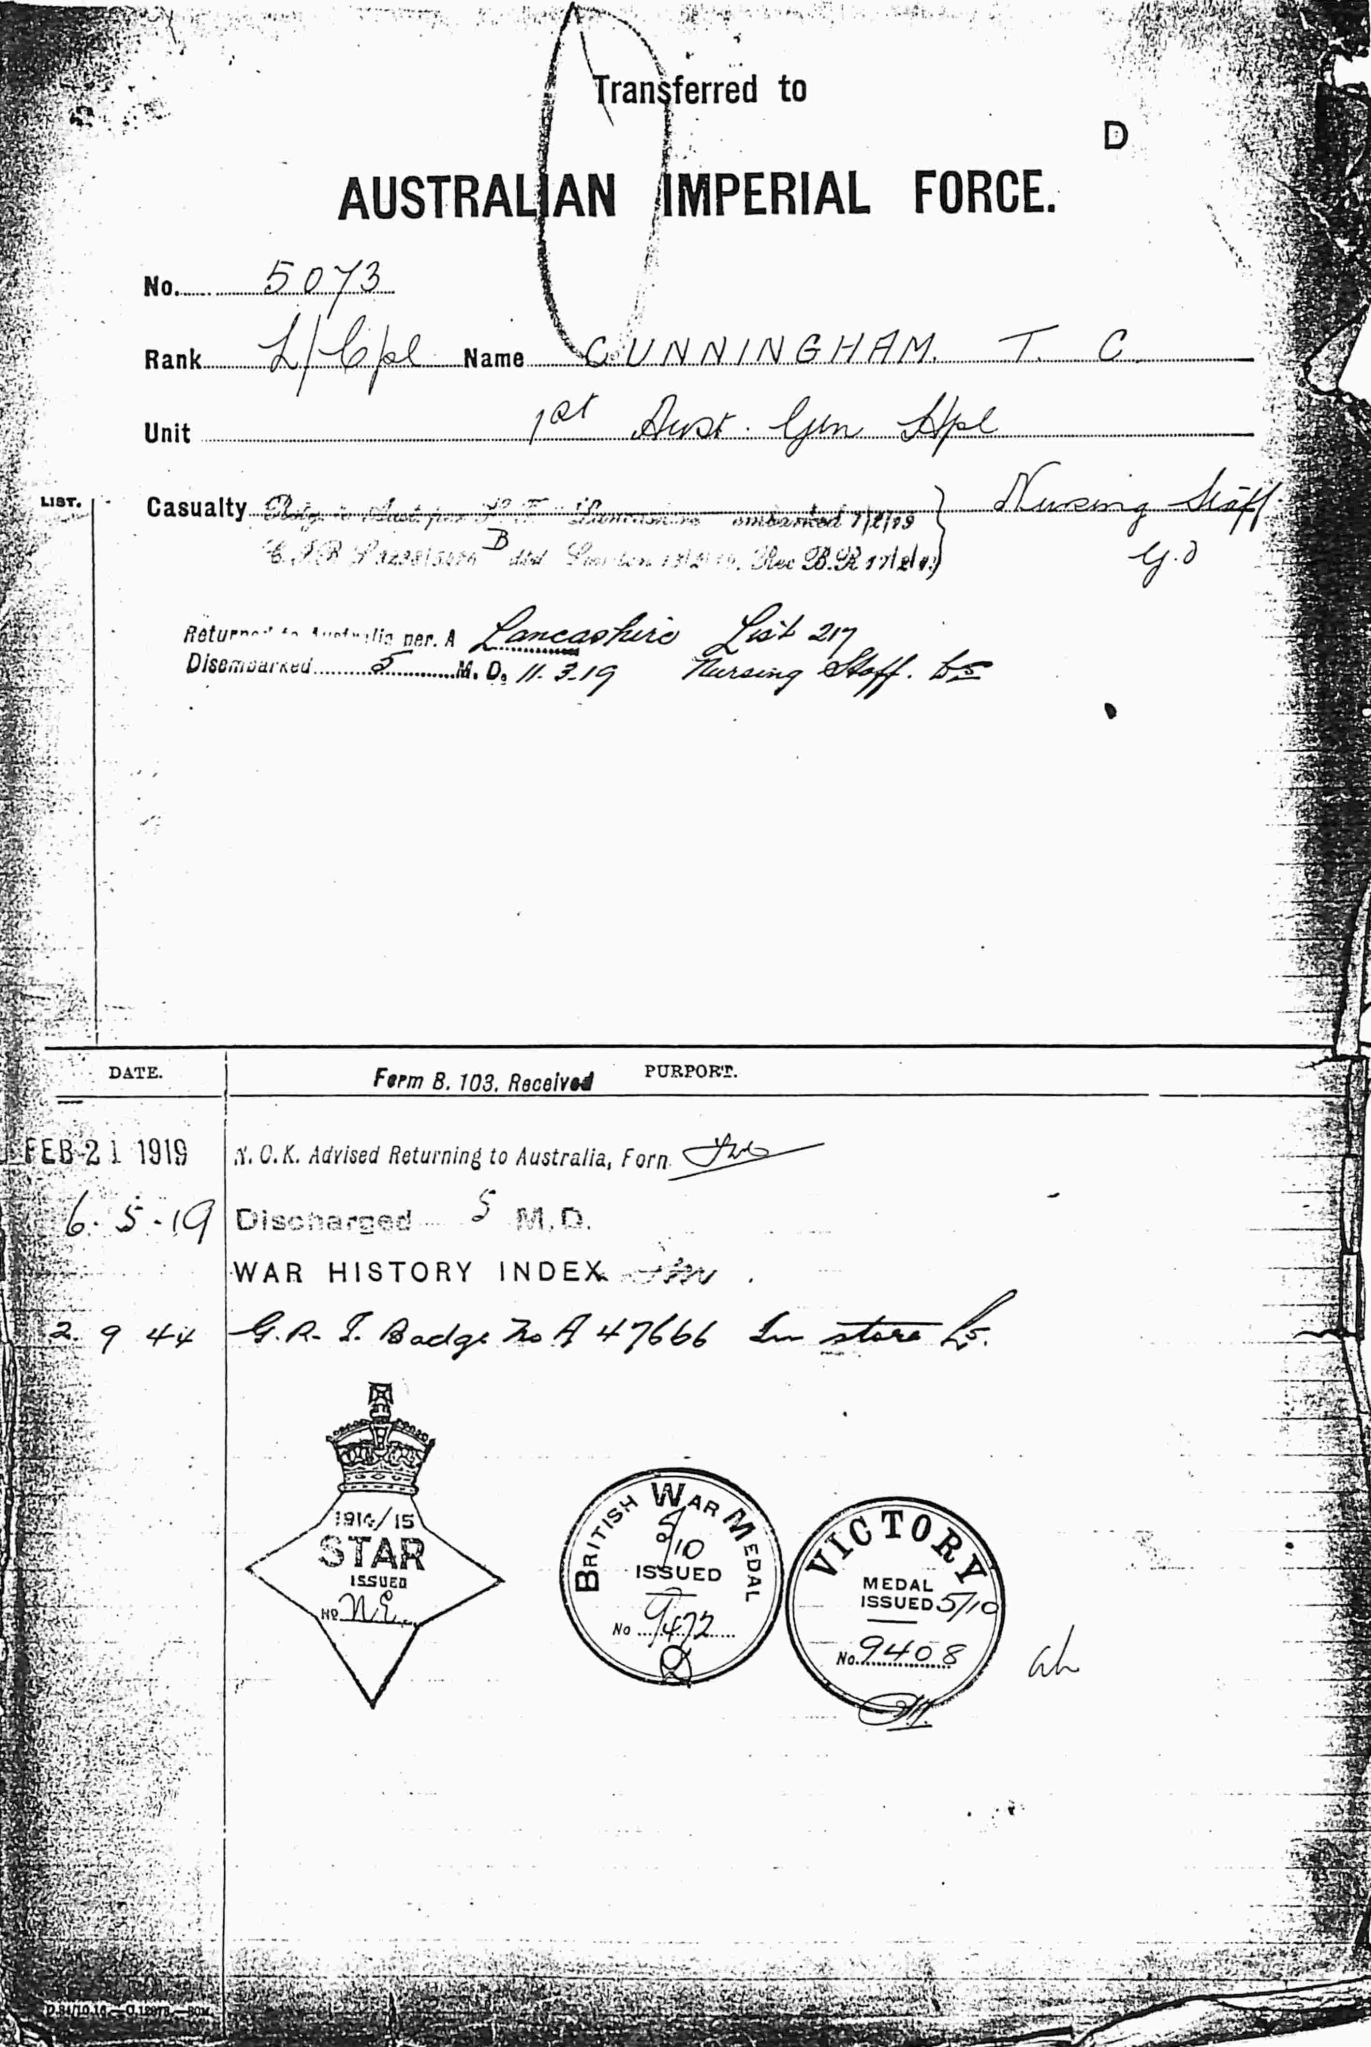 Transferred to
D
AUSTRALIAN IMPERIAL FORCE.
No. 5073
Rank L/Cpl Name CUNNINGHAM. T. C.
Unit 1st Aust. Gen Hpl
LIST.
Casualty Rtng to Aust per H.T. "Lancashire" embarked 7/2/19
Nursing Staff
B London Rec B.R 17/2/19
Returned to Australia per. A Lancashire List 217
Disembarked 5 M. D. 11.3.19 Nursing Staff.
DATE. PURPORT.
Form B. 103. Received
FEB 21 1919 N.O.K. Advised Returning to Australia, Form
6.5.19 Discharged 5 M.D.
WAR HISTORY INDEX
2 9 44 G.R.I. Badge No A 47666 In store
1914/15
STAR
ISSUED
No N.E.
BRITISH WAR MEDAL
5/10
ISSUED
No 9472
VICTORY
MEDAL
ISSUED 5/10
No. 9408